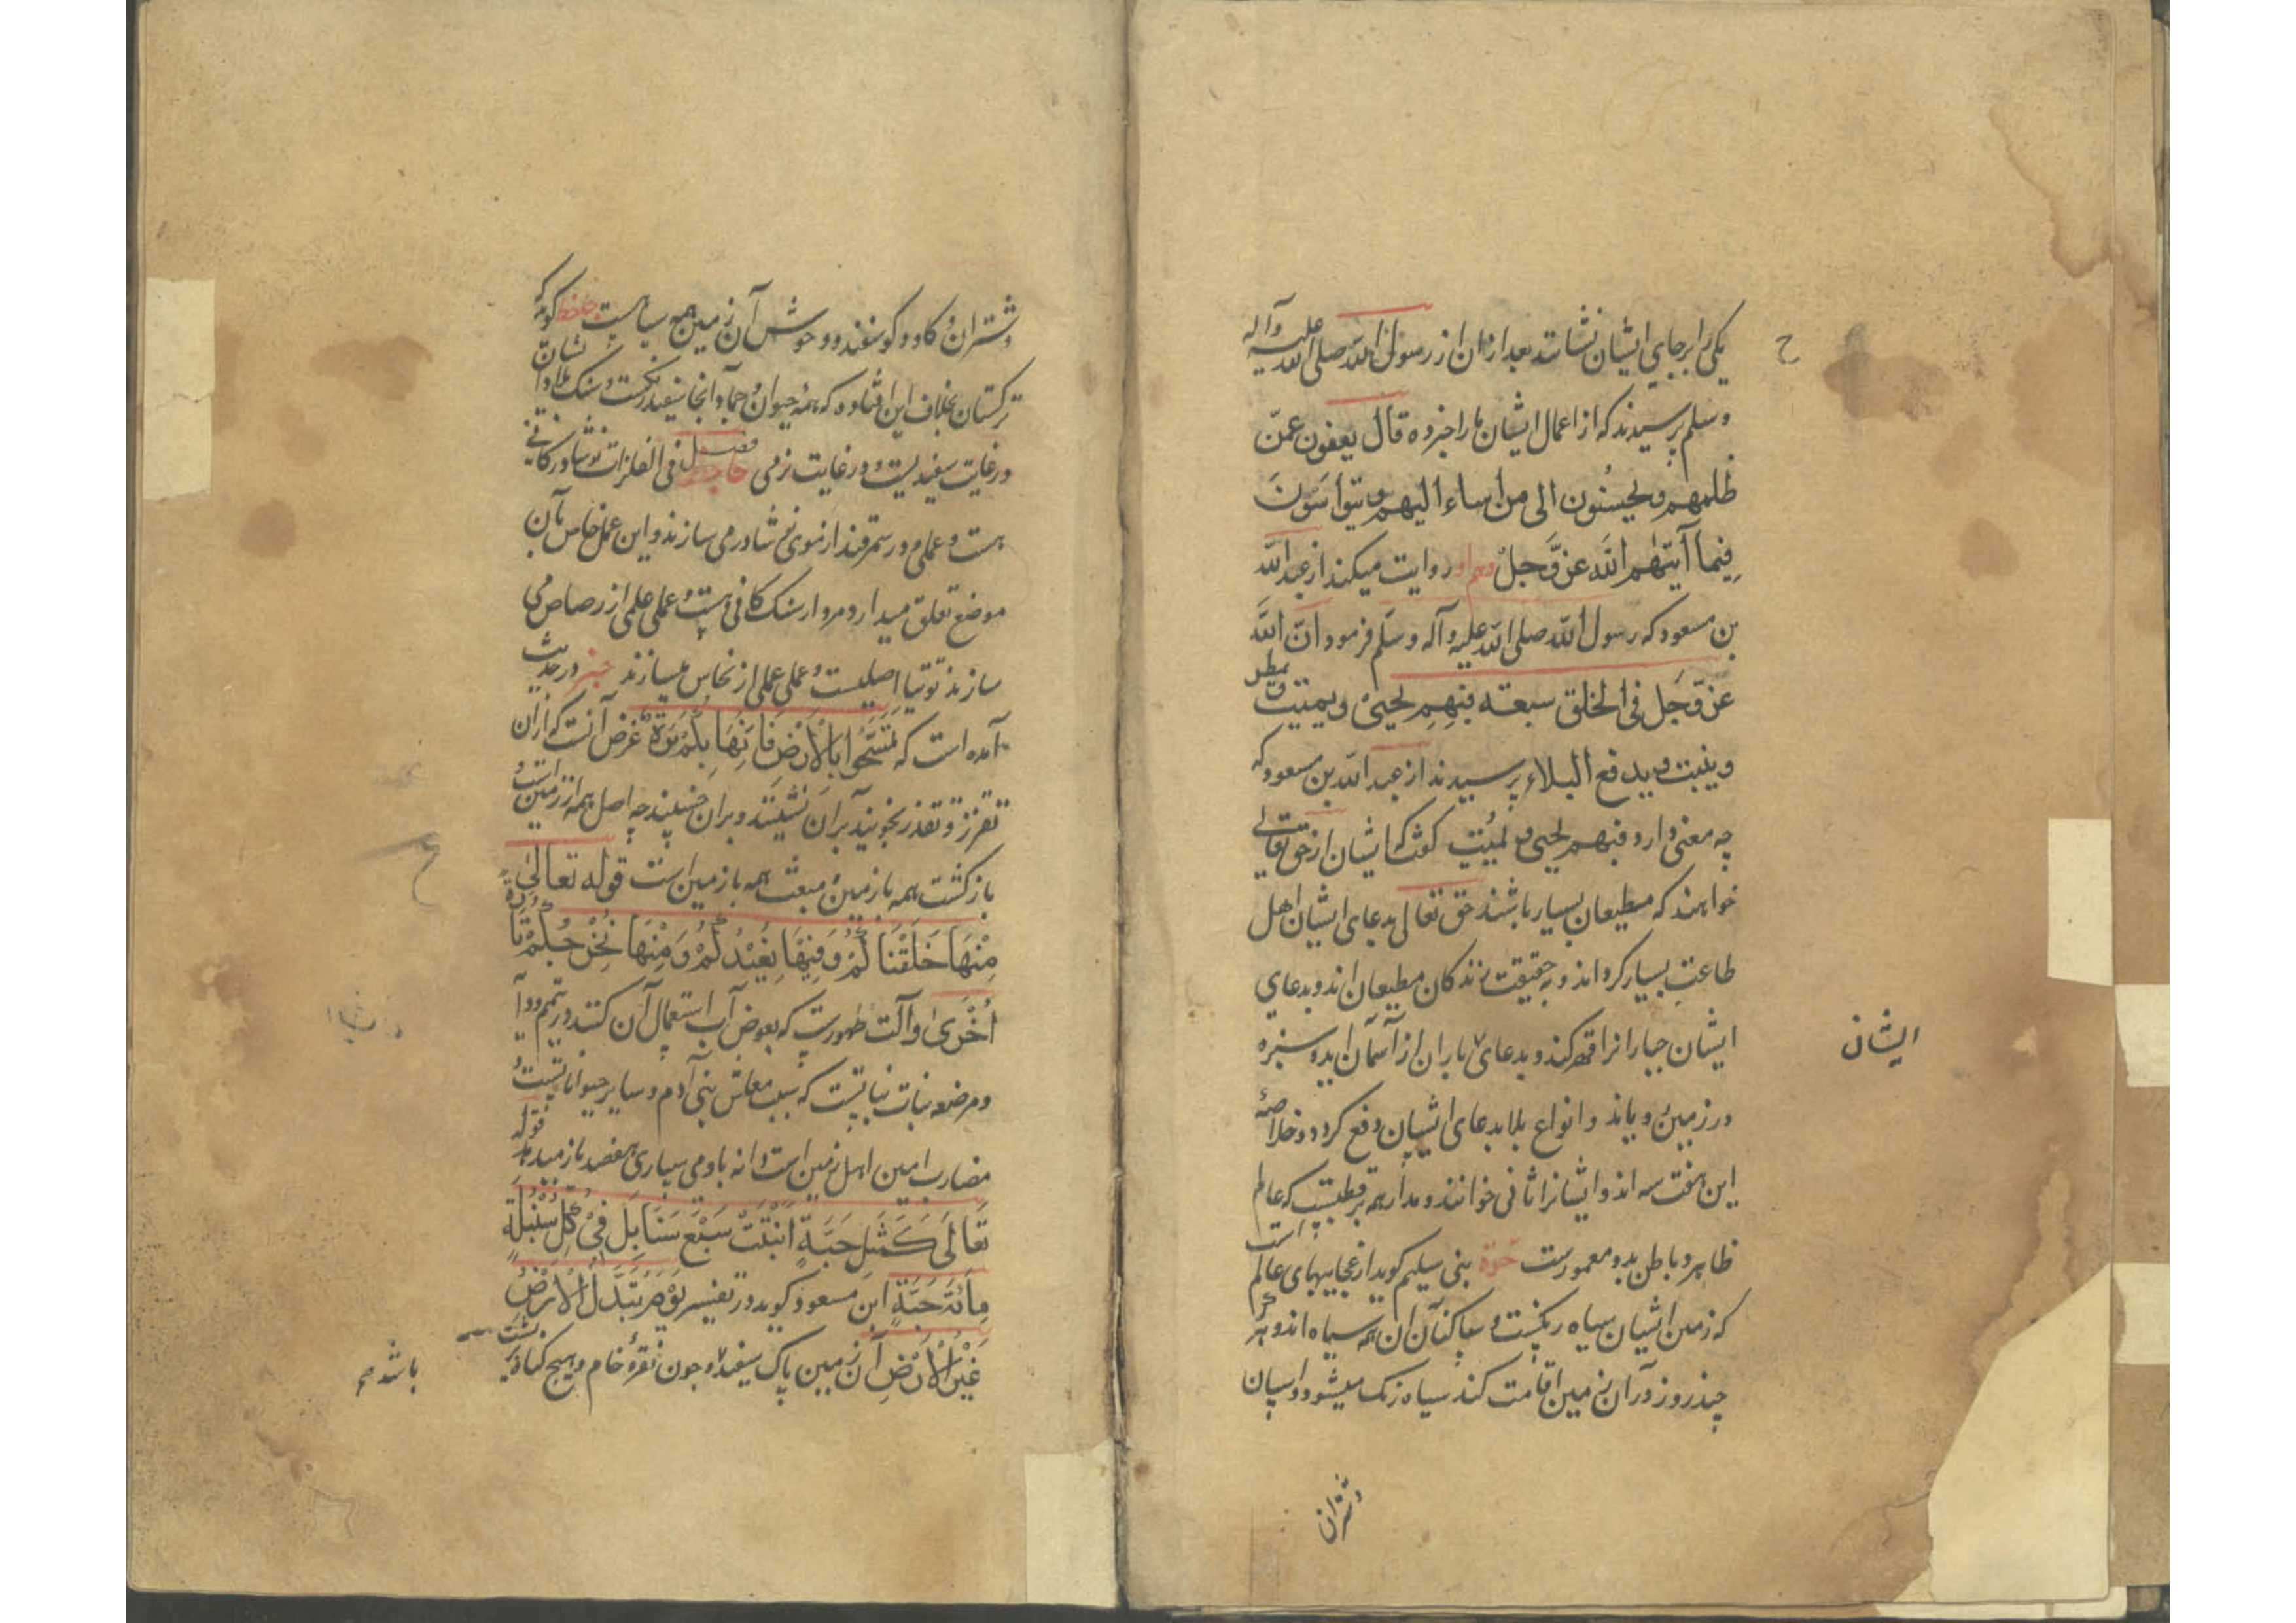 یکی را برجای ایشان نشاند بعد ازان از رسول الله صلی الله علیه وآله
ح
وسلم پرسیدند که از اعمال ایشان ما را خبر ده قال یعفون عمّن
ظلمهم ویحسنون الی من اساء الیهم ویتواسَون
فیما آیتهم الله عزّ وجلّ وهم او روایت میکند از عبد الله
بن مسعود که رسول الله صلی الله علیه وآله وسلم فرمود انّ الله
عزّ وجل فی الخلق سبعة فبهم یحیی ویمیت ویمطر
وینبت ویدفع البلاء پرسیدند از عبد الله بن مسعود که
چه معنی دارد فبهم یحیی ویمیت گفت که ایشان از حق تعالی
خواهند که مطیعان بسیار باشند حق تعالی بدعای ایشان اهل
طاعت بسیار کرداند و به حقیقت زندکان مطیعان اند و بدعای
ایشان جبارانرا قهر کند و بدعای باران از آسمان اید و سبزه
ایشان
در زمین رویاند و انواع بلا بدعای ایشان دفع کردد و خلاصهٔ
این هفت سه اند و ایشانرا خوانند و مدار همه بر قطبست که عالم
ظاهر و باطن بدو معمورست حرّة بنی سلیم کوید از عجایبهای عالم است
که زمین ایشان سیاه رنکست و ساکنان آن همه سیاه اند و هرکه
چند روز در آن زمین اقامت کند سیاه رنک میشود و اسپان
وشتران
وشتران و کاو و کوسفند و وحوش آن زمین همه سیاهست حافظ کوید که
ترکستان بخلاف این افتاده که همه حیوان و جماد انجا سفید رنکست و سنک
در غایت سفیدیست و در غایت نرمی فصل فی الفلزات نوشادر کانی
هست و عملی و در سمرقند از موی نوشادر می سازند و این عمل خاص بآن
موضع تعلق میدارد و مردار سنک کانی هست و عملی عملی از رصاص می
سازند توتیا اصلیست و عملی عملی از نحاس میسازند خبر در حدیث
آمده است که تمسّحوا بالارض فانها بکم برّة غرض آنست که ازان
تقزز و تقذر نجویند بران نشینند و بران خسپند چه اصل همه از زمین است و
بازکشت همه با زمین و مبعث همه باز زمین است قوله تعالی
منها خلقناکم وفیها نعیدکم ومنها نخرجکم تارة
اخری و آلت طهورست که بعوض آب استعمال آن کنند در تیمم
ومرضعه نبات نباتیست که سبب معاش بنی آدم و سایر حیواناتست و
مضارب امین اهل زمین است دانه باو می سپاری هفصد باز میدهد قوله
تعالی کمثل حبّة انبتت سبع سنابل فی کل سنبلة
مائة حبة ابن مسعود کوید در تفسیر یوم تبدّل الارض
غیر الارض آن زمین پاک سفید و چون نقره خام و هیچ کناه
باشد صح